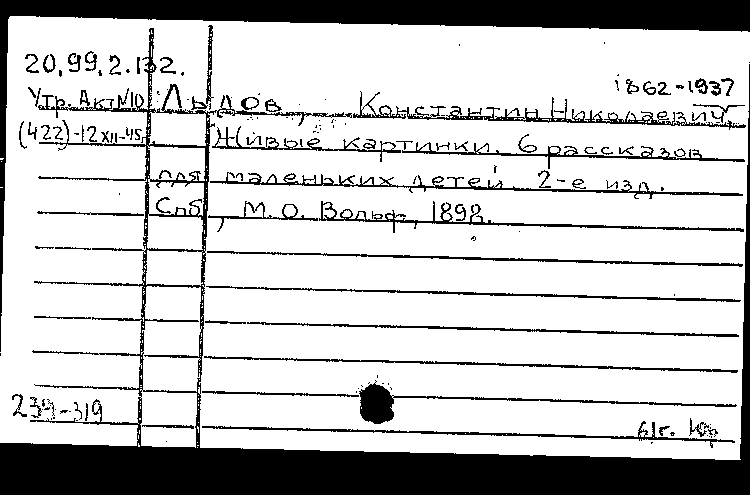 20,99.2.132.
1862-1937
Утр. Акт №10 Льдов, Константин Николаевич.
(422)-12 XII-45г. Живые картинки. 6 рассказов
для маленьких детей. 2-е изд.
Спб, М. О. Вольф, 1898.
239-319
61г.